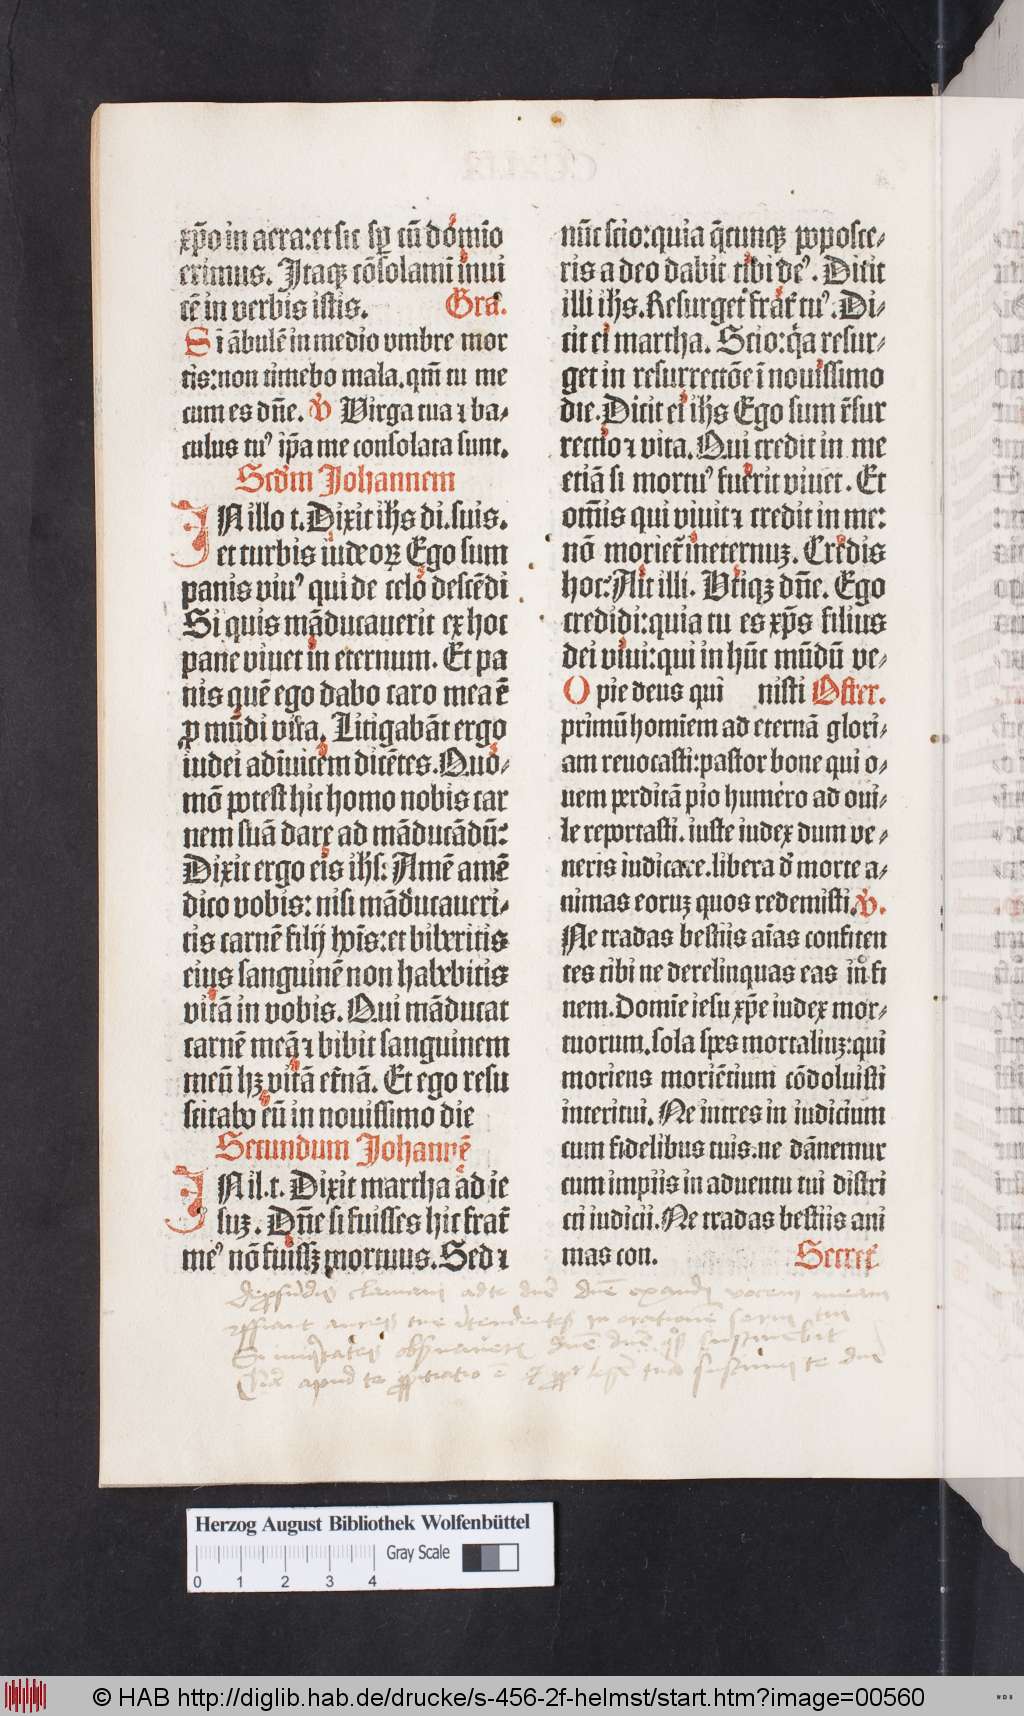 xp̄o in aera: et sic sꝑ cū domīo
erimus. Itaqꝫ cōsolamī inui
cē in verbis istis. Gra.
Si ābulē in medio vmbre mor
tis: non timebo mala. qm̄ tu me
cum es dn̄e. ℣ Virga tua ⁊ ba⸗
culus tuꝰ ip̄a me consolata sunt.
Scdm Johannem
IN illo t. Dixit ih̄s di. suis.
et turbis iudeoꝝ Ego sum
panis viuꝰ qui de celo descēdi
Si quis māducauerit ex hoc
pane viuet in eternum. Et pa
nis quē ego dabo caro mea ē
ꝓ mūdi vita. Litigabāt ergo
iudei adinuicem dicētes. Quō⸗
mō potest hic homo nobis car
nem suā dare ad māducādū?
Dixit ergo eis ih̄s: Amē amē
dico vobis: nisi māducaueri⸗
tis carnē filij hoīs: et biberitis
eius sanguinē non habebitis
vitā in vobis. Qui māducat
carnē meā ⁊ bibit sanguinem
meū hꝫ vitā et̄nā. Et ego resu
scitabo eū in nouissimo die
Secundum Johannē
IN il. t. Dixit martha ad ie
suꝫ. Dn̄e si fuisses hic frat̄
meꝰ nō fuissꝫ mortuus. Sed ⁊
nūc scio: quia q̄cunqꝫ poposce⸗
ris a deo dabit tibi deꝰ. Dicit
illi ih̄s. Resurget frat̄ tuꝰ. Di⸗
cit ei martha. Scio: q̄a resur⸗
get in resurrectōe ī nouissimo
die. Dicit ei ih̄s Ego sum r̄sur
rectio ⁊ vita. Qui credit in me
etiā si mortuꝰ fuerit viuet. Et
om̄is qui viuit ⁊ credit in me:
nō moriet̄ in eternuꝫ. Credis
hoc? Ait illi. Vtiqꝫ dn̄e. Ego
credidi: quia tu es xp̄s filius
dei viui: qui in hūc mūdū ve⸗
O pie deus qui nisti Offer.
primū hominem ad eternā glori⸗
am reuocasti: pastor bone qui o⸗
uem perditā pio humero ad oui⸗
le reportasti. iuste iudex dum ve⸗
neris iudicare. libera d̄ morte a⸗
nimas eoruꝫ quos redemisti. ℣.
Ne tradas bestiis aīas confiten
tes tibi ne derelinquas eas in fi
nem. Domīe iesu xp̄e iudex mor⸗
tuorum. sola spes mortaliuꝫ: qui
moriens moriētium cōdoluisti
interitui. Ne intres in iudicium
cum fidelibus tuis. ne dānemur
cum impiis in aduentu tui distri
cti iudicii. Ne tradas bestiis ani
mas con. Secret̄
De ꝓfūdis clamaui ad te dn̄e dn̄e exaudi vocem meam
fiant aures tue ītendentes in orationē serui tui
Si iniq̄tates obseruaueris dn̄e dn̄e q̄s sustinebit
Quia apud te ꝓpitiatio ē ⁊ ꝓpt̄ legē tuā sustinui te dn̄e
Herzog August Bibliothek Wolfenbüttel
Gray Scale
0 1 2 3 4
© HAB http://diglib.hab.de/drucke/s-456-2f-helmst/start.htm?image=00560